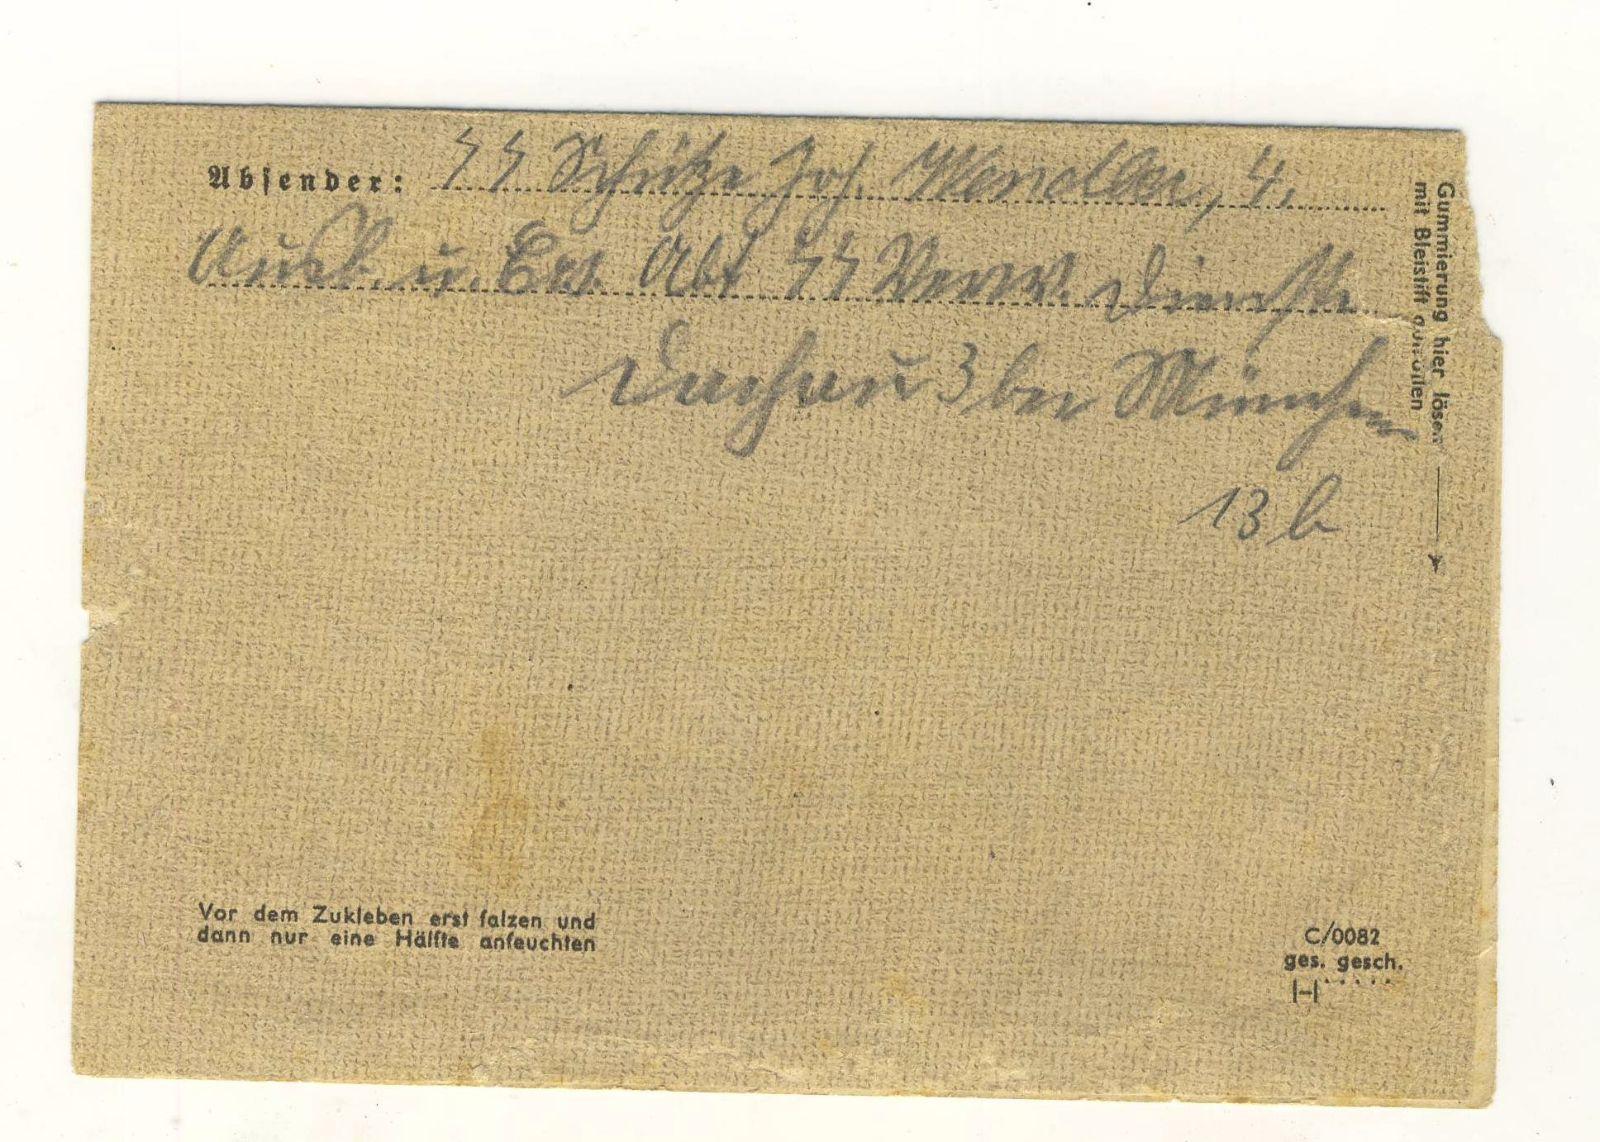 Absender: SS Schütze Joh. Wendler, 4.
Ausb. u. Ers. Abt SS Verw. Dienste
Dachau 3 bei München
13 b
Gummierung hier lösen
mit Bleistift aufrollen
Vor dem Zukleben erst falzen und
dann nur eine Hälfte anfeuchten
C/0082
ges. gesch.